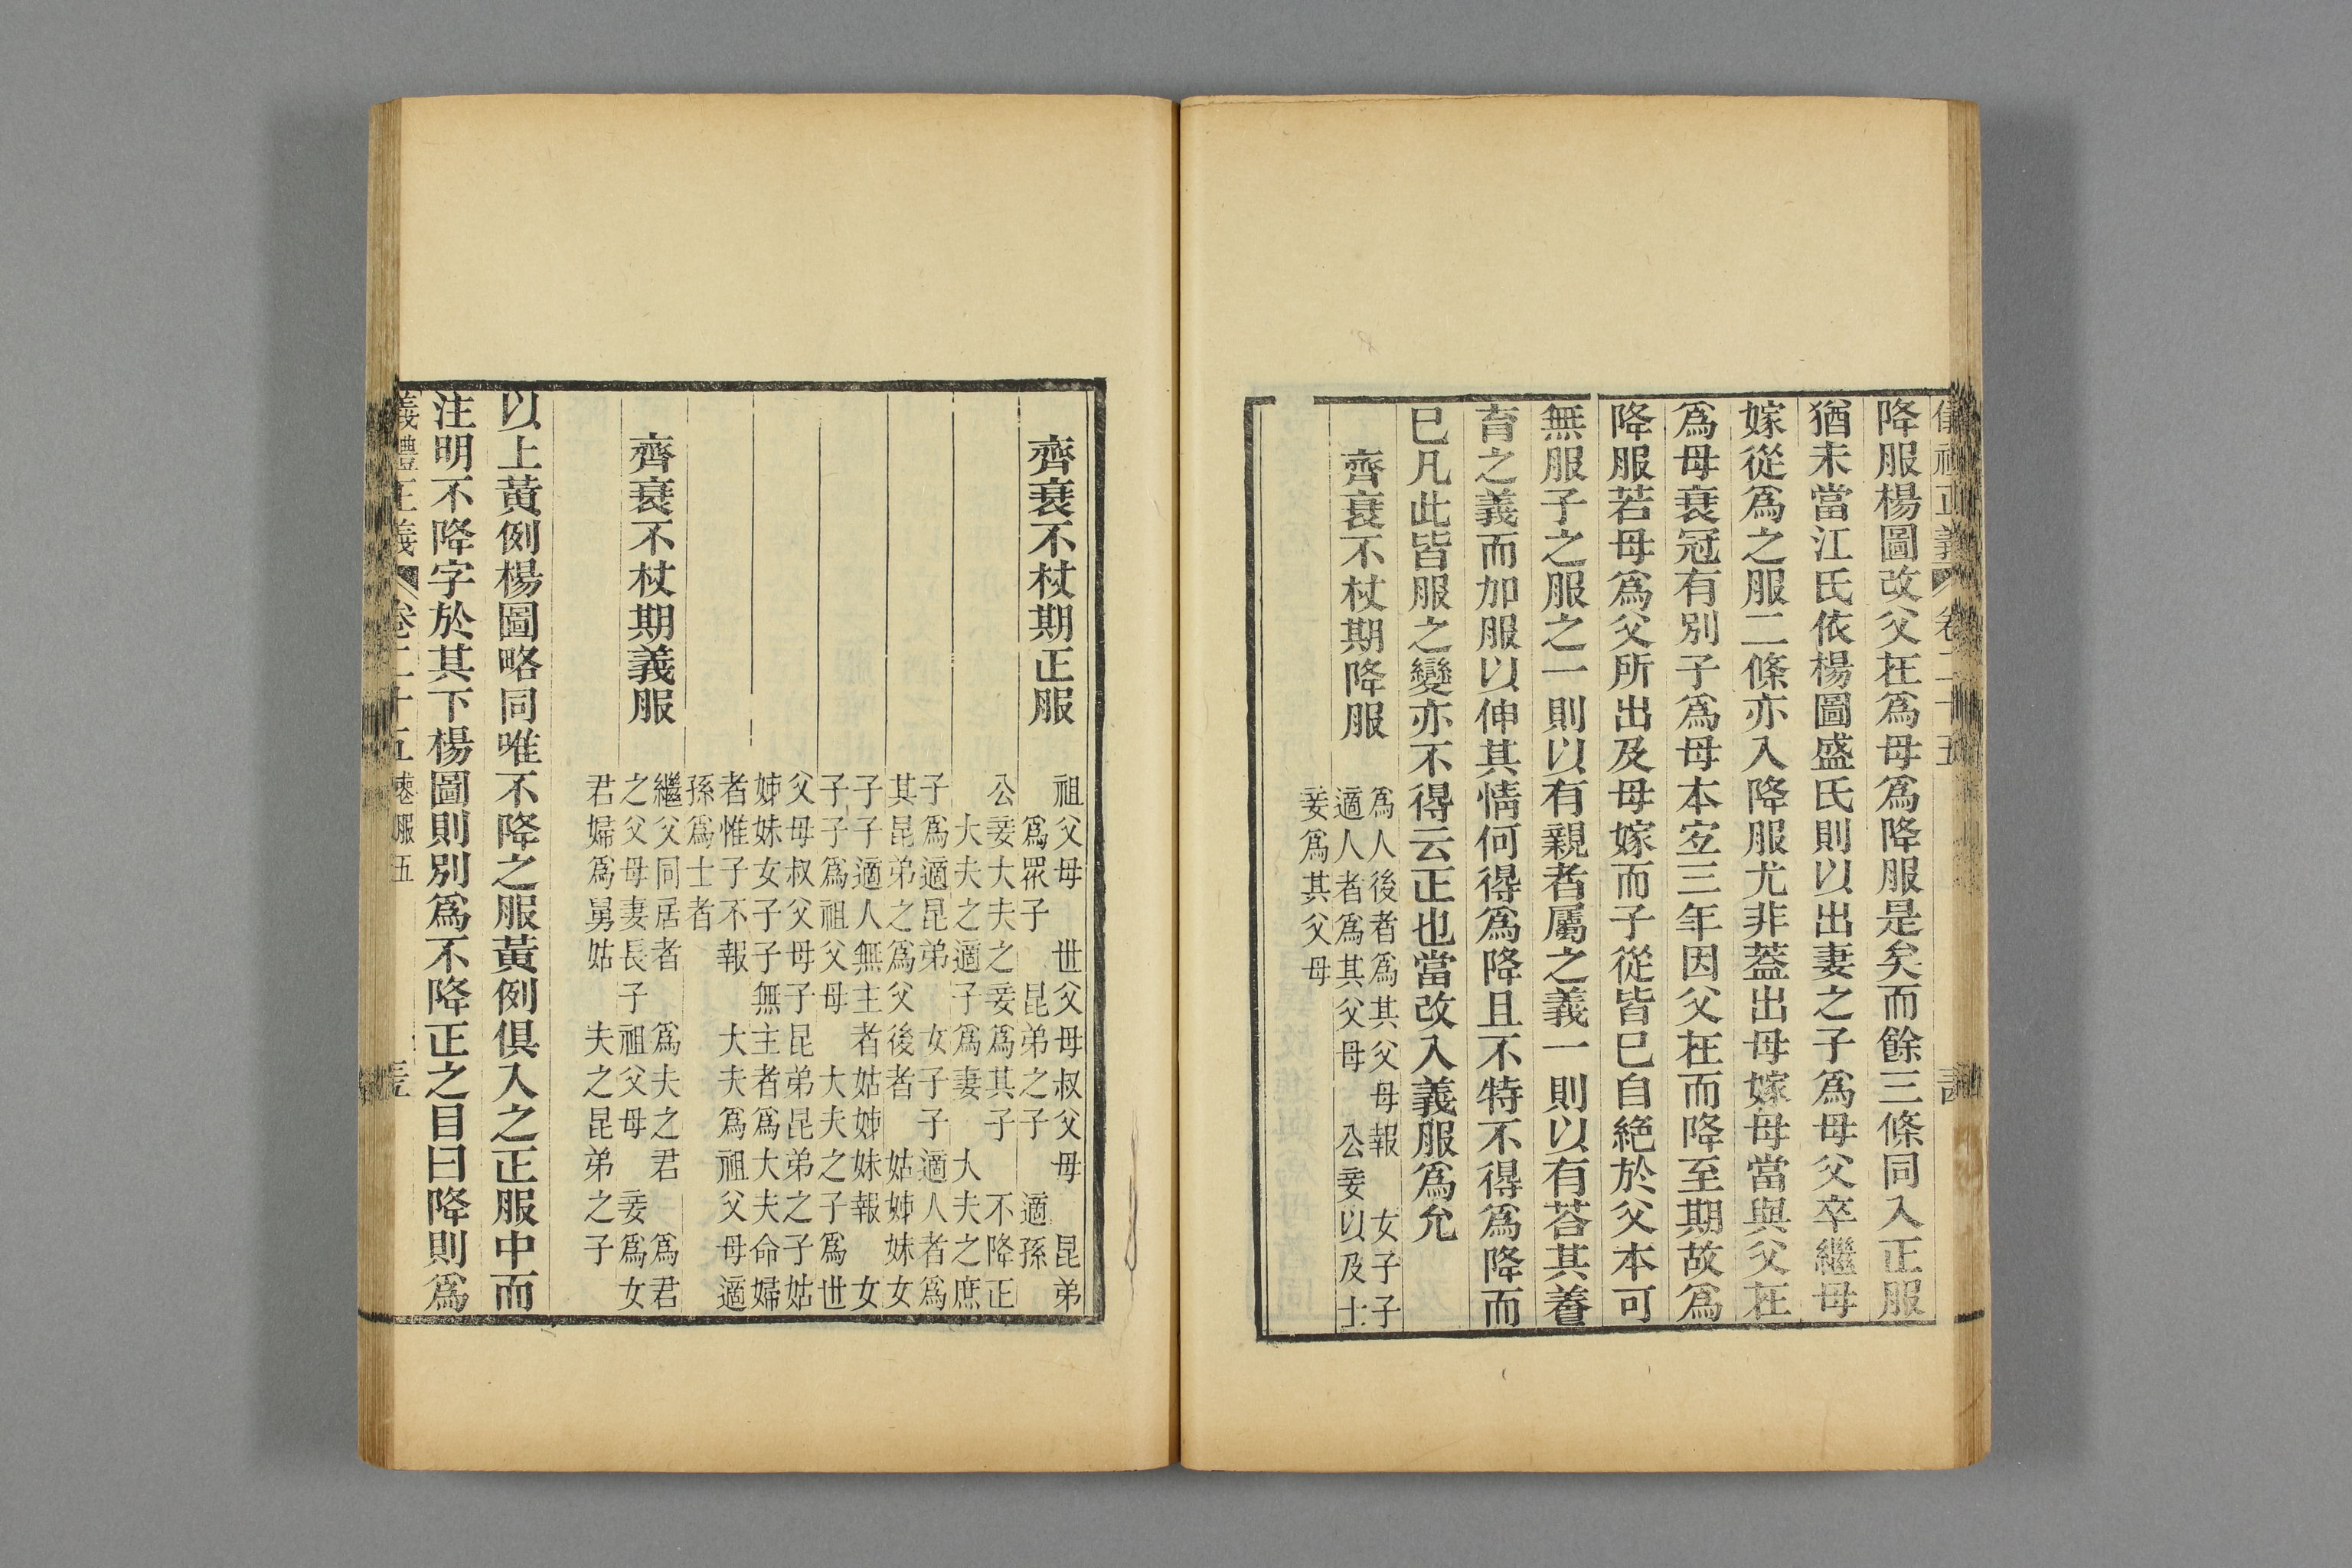 降服楊圖改父在為母為降服是矣而餘三條同入正服
猶未當江氏依楊圖盛氏則以出妻之子為母父卒繼母
嫁從為之服二條亦入降服尤非蓋出母嫁母當與父在
為母衰冠有別子為母本宐三年因父在而降至期故為
降服若母為父所出及母嫁而子從皆已自絕於父本可
無服子之服之一則以有親者屬之義一則以有荅其養
育之義而加服以伸其情何得為降且不特不得為降而
已凡此皆服之變亦不得云正也當改入義服為允
齊衰不杖期降服
為人後者為其父母報 女子子
適人者為其父母 公妾以及士
妾為其父母
齊衰不杖期正服
祖父母 世父母叔父母 昆弟
為眾子 昆弟之子 適孫
公妾大夫之妾為其子 不降正
大夫之適子為妻 大夫之庶
子為適昆弟 女子子適人者為
其昆弟之為父後者 姑姊妹女
子子適人無主者姑姊妹報 女
子子為祖父母 大夫之子為世
父母叔父母子昆弟昆弟之子姑
姊妹女子子無主者為大夫命婦
者惟子不報 大夫為祖父母適
孫為士者
齊衰不杖期義服
繼父同居者 為夫之君 為君
之父母妻長子祖父母 妾為女
君婦為舅姑 夫之昆弟之子
以上黃例楊圖略同唯不降之服黃例俱入之正服中而
注明不降字於其下楊圖則別為不降正之目曰降則為
義禮正義 卷二十五 喪服五